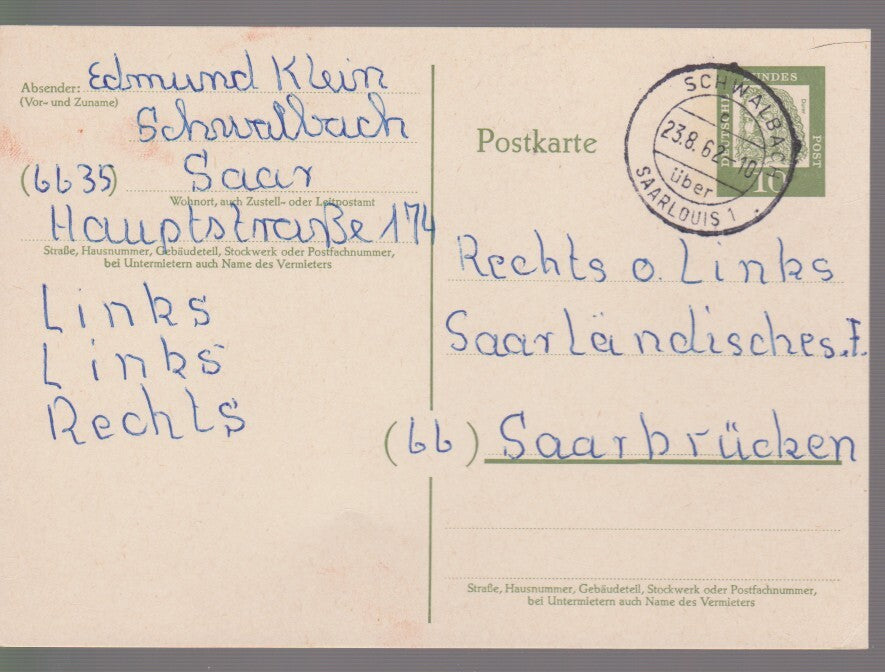 Absender: Edmund Klein
(Vor- und Zuname)
Schwalbach
(6635) Saar
Wohnort, auch Zustell- oder Leitpostamt
Hauptstraße 174
Straße, Hausnummer, Gebäudeteil, Stockwerk oder Postfachnummer,
bei Untermietern auch Name des Vermieters
Links
Links
Rechts
Postkarte
DEUTSCHE BUNDES POST
10
SCHWALBACH
c
23.8.62-10
über
SAARLOUIS 1
Rechts o. Links
Saarländisches.F.
(66) Saarbrücken
Straße, Hausnummer, Gebäudeteil, Stockwerk oder Postfachnummer,
bei Untermietern auch Name des Vermieters